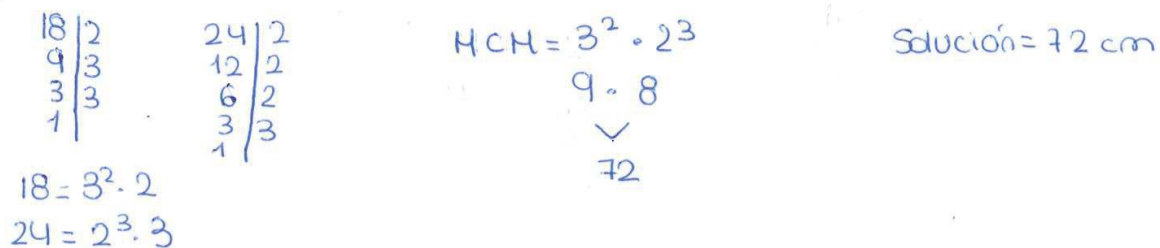 18|2
9|3
3|3
1|
24|2
12|2
6|2
3|3
1|
18 = 3². 2
24 = 2³. 3
MCM = 3² · 2³
9 · 8
72
Solución = 72 cm